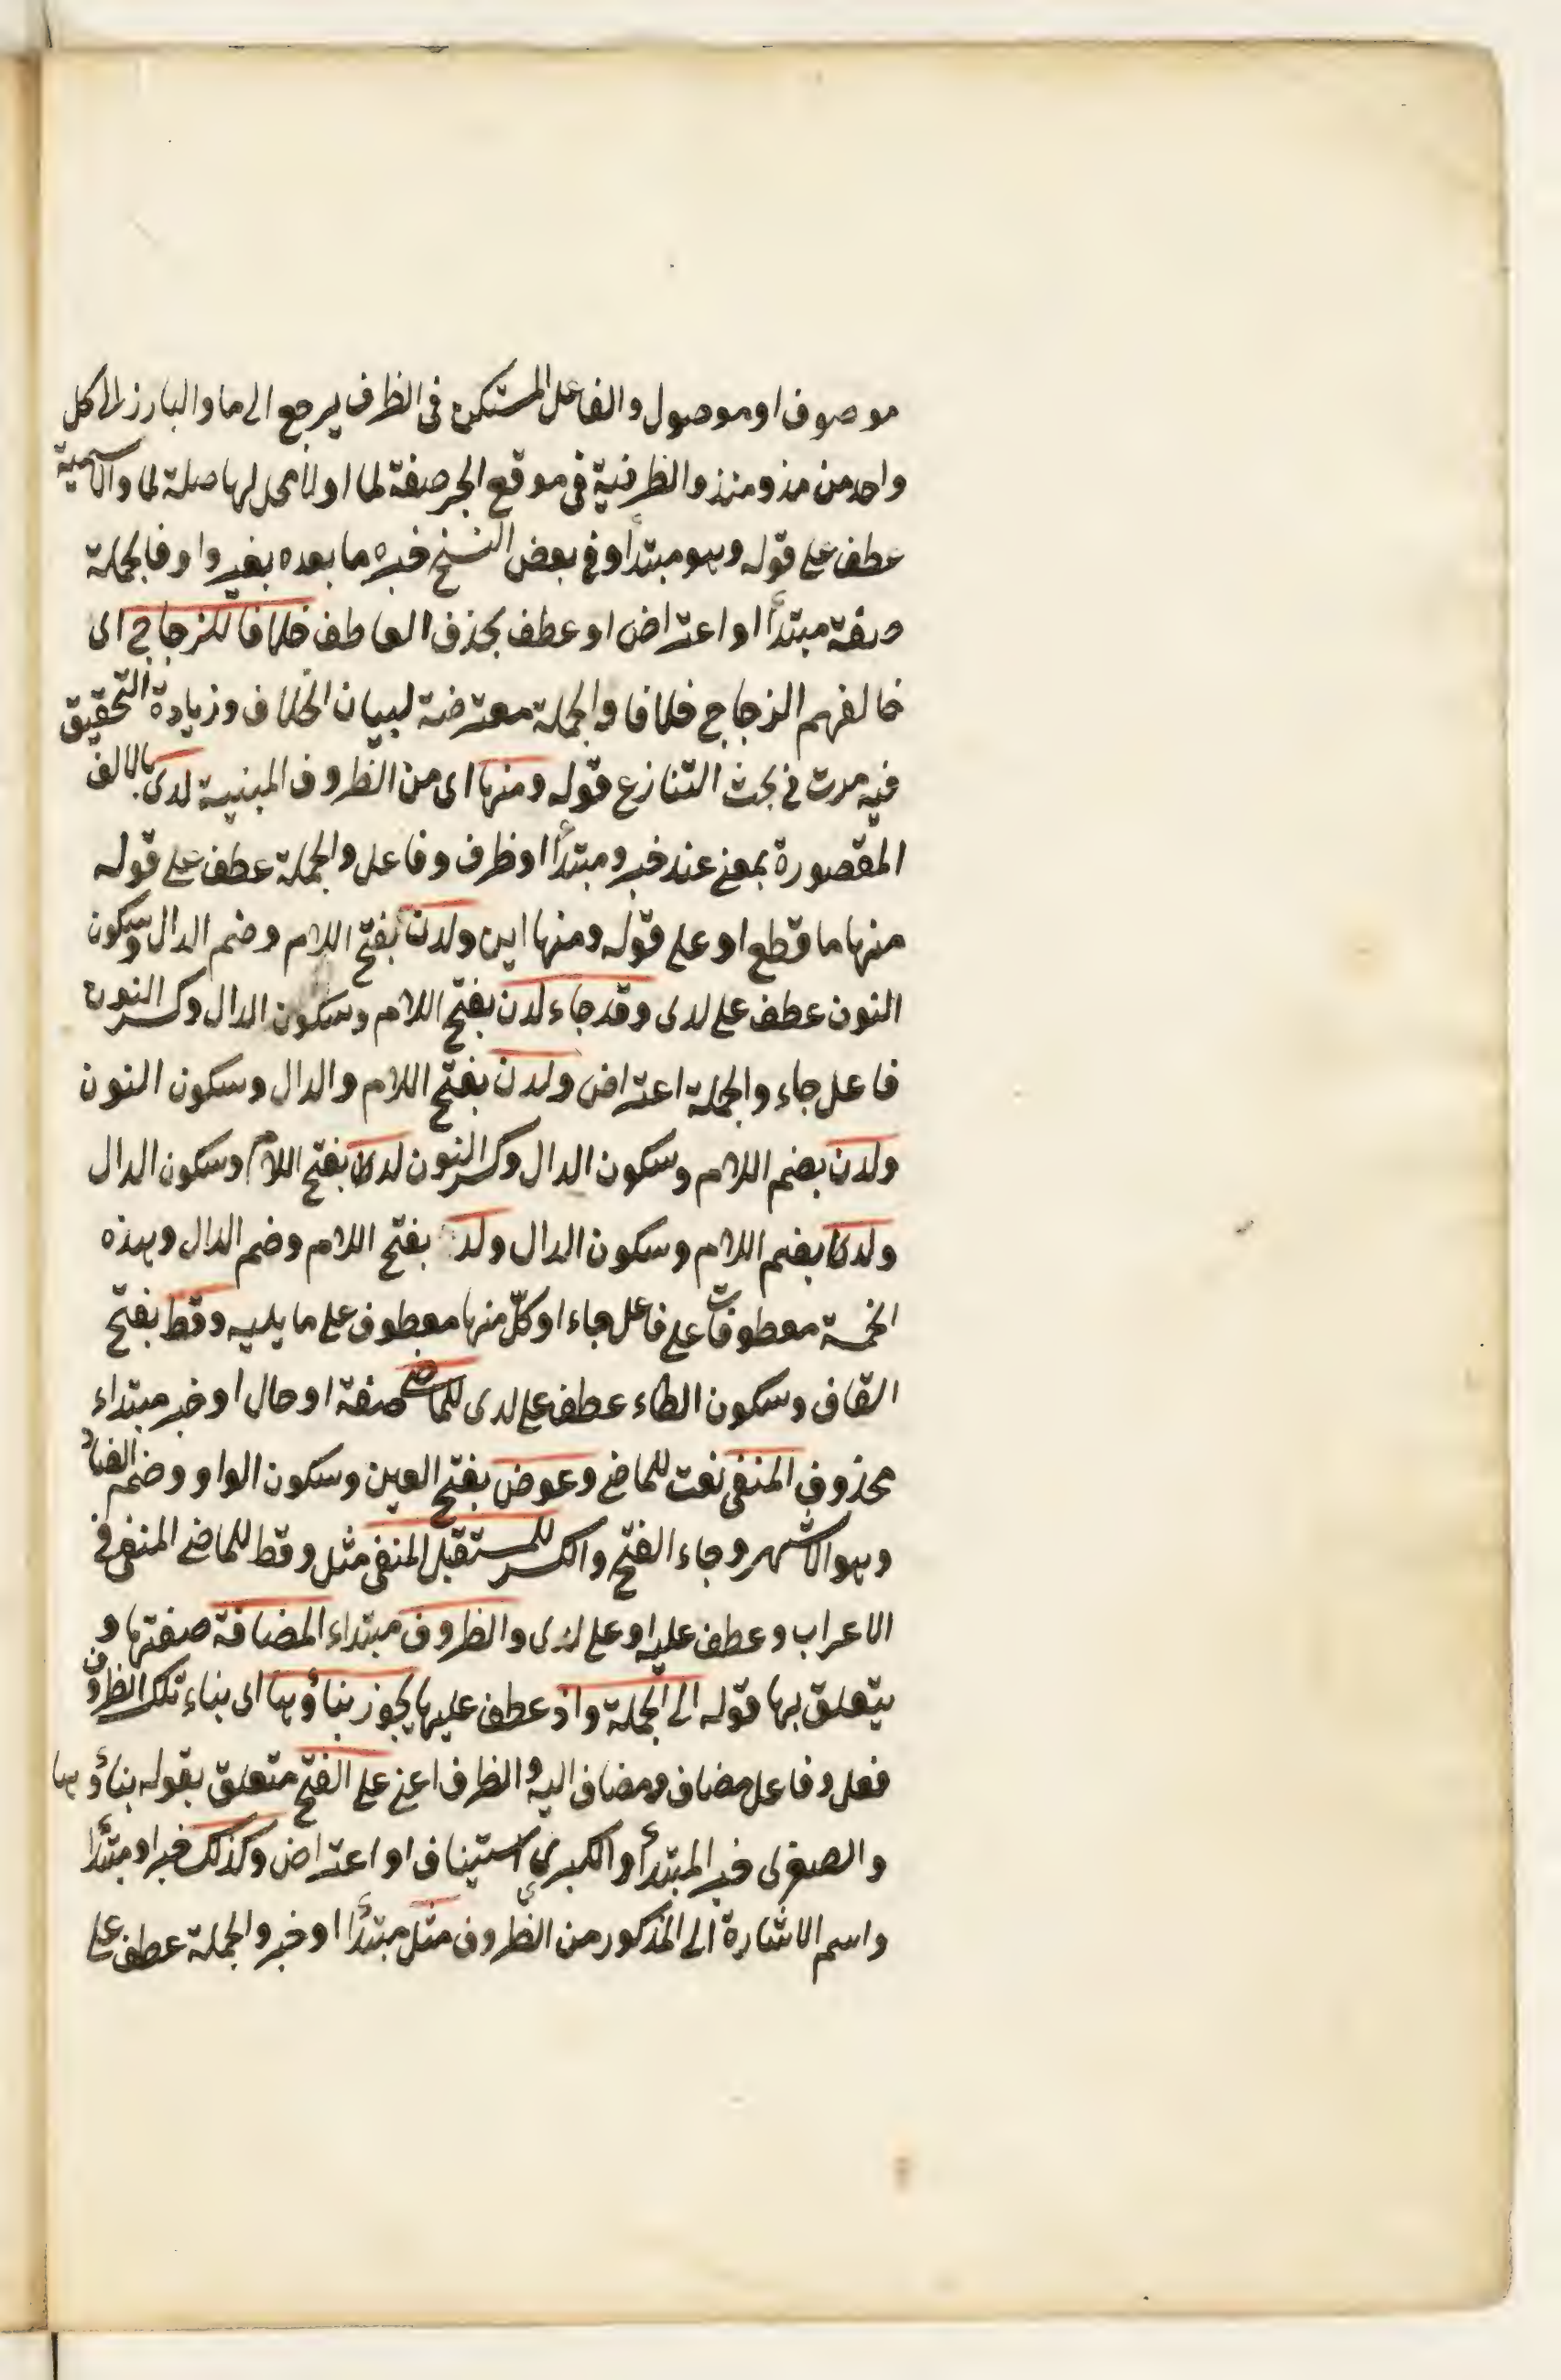 موصوف او موصول والفاعل المستكن فى الظرف يرجع الى ما والبارز الى كل
واحد من مذ ومنذ والظرفية فى موقع الجر صفة لما او لا محل لها صلة لما والاسمية
عطف على قوله وهو مبتدأ وفى بعض النسخ خبره ما بعده بغير واو فالجملة
صفة مبتدأ او اعتراض او عطف بحذف العاطف خلافا للزجاج اى
خالفهم الزجاج خلافا والجملة معترضة لبيان الخلاف وزيادة التحقيق
فيه مرت فى بحث التنازع قوله ومنها اى من الظروف المبنية لدى بالالف
المقصورة بمعنى عند خبر ومبتدأ او ظرف وفاعل والجملة عطف على قوله
منها ما قطع او على قوله ومنها اين ولدن بفتح اللام وضم الدال وسكون
النون عطف على لدى وقد جاء لدن بفتح اللام وسكون الدال وكسر النون
فاعل جاء والجملة اعتراض ولدن بفتح اللام والدال وسكون النون
ولدن بضم اللام وسكون الدال وكسر النون لدك بفتح اللام وسكون الدال
ولدك بضم اللام وسكون الدال ولد بفتح اللام وضم الدال وهذه
الخمسة معطوفات على فاعل جاء او كلّ منها معطوف على ما يليه وقط بفتح
القاف وسكون الطاء عطف على لدى للماضى صفة او حال او خبر مبتداء
محذوف المنفى نعت للماضى وعوض بفتح العين وسكون الواو وضم الضاد
وهو الاشهر وجاء الفتح والكسر للمستقبل المنفى مثل وقط للماضى المنفى فى
الاعراب وعطف عليه او على لدى والظروف مبتداء المضافة صفتها و
يتعلق بها قوله الى الجملة واذ عطف عليها يجوز بناؤها اى بناء تلك الظروف
فعل وفاعل مضاف ومضاف اليه والظرف اعنى على الفتح متعلق بقوله بناؤها
والصغرى خبر المبتدأ والكبرى استيناف او اعتراض وكذلك خبر او مبتدأ
واسم الاشارة الى المذكور من الظروف مثل مبتدأ او خبر والجملة عطف على